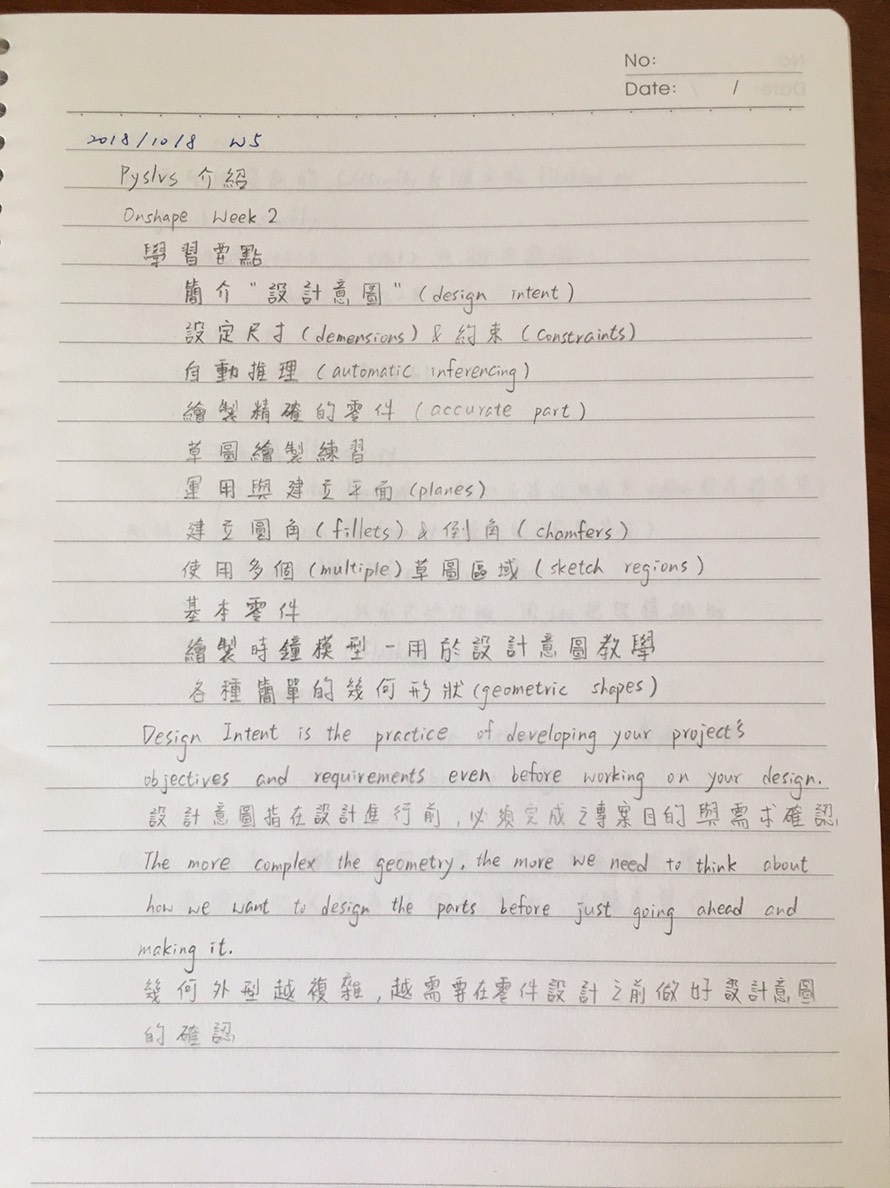 No:
Date: /
2018/10/8 W5
Pyslvs 介紹
Onshape Week 2
學習要點
簡介"設計意圖"(design intent)
設定尺寸(demensions)&約束(constraints)
自動推理(automatic inferencing)
繪製精確的零件(accurate part)
草圖繪製練習
運用與建立平面(planes)
建立圓角(fillets)&倒角(chamfers)
使用多個(multiple)草圖區域(sketch regions)
基本零件
繪製時鐘模型-用於設計意圖教學
各種簡單的幾何形狀(geometric shapes)
Design Intent is the practice of developing your project's
objectives and requirements even before working on your design.
設計意圖指在設計進行前,必須完成之專案目的與需求確認.
The more complex the geometry, the more we need to think about
how we want to design the parts before just going ahead and
making it.
幾何外型越複雜,越需要在零件設計之前做好設計意圖
的確認.